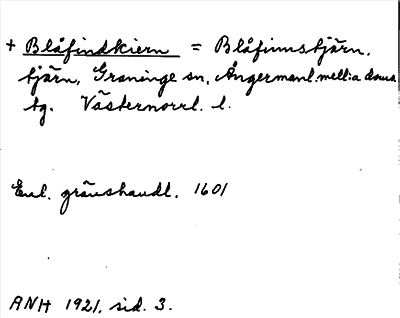 + Blåfindkiern = Blåfinnstjärn,
tjärn, Graninge sn, Ångermanl. mell:a doms.
tg. Västernorrl. l.
Enl. gränshandl. 1601
ANH 1921, sid. 3.